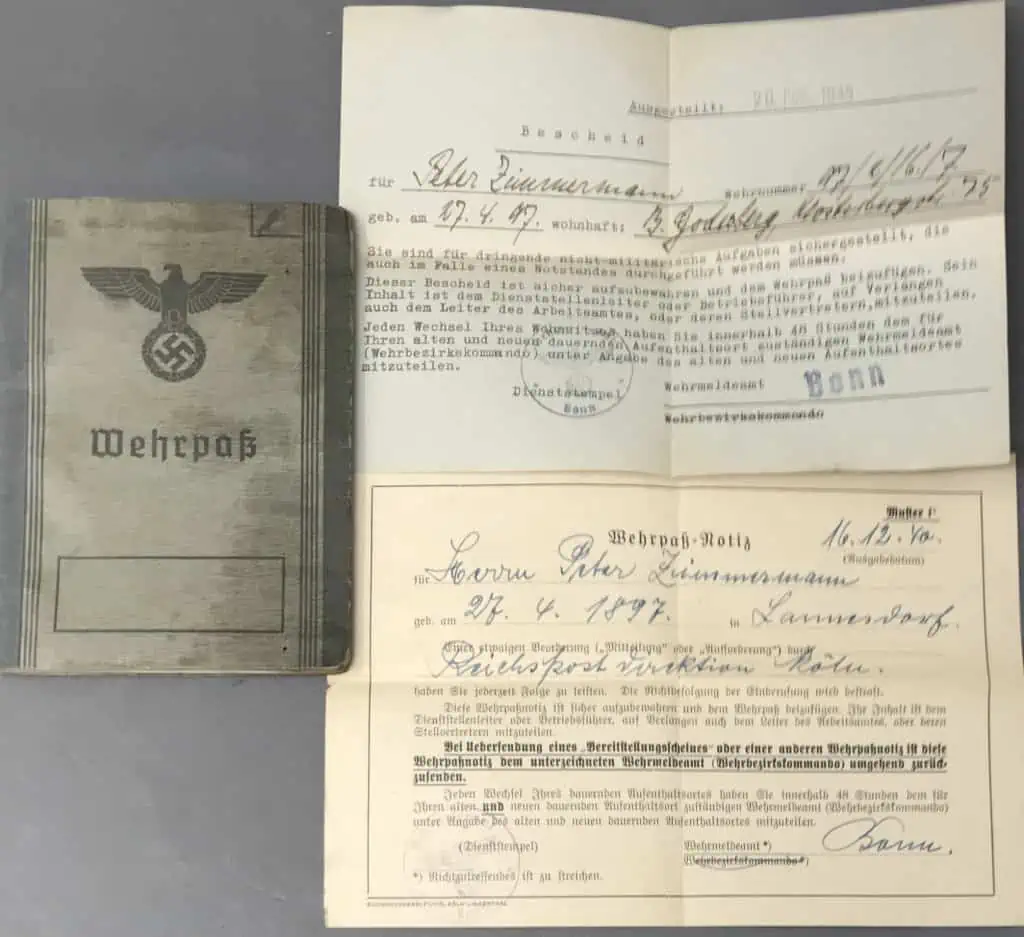 Wehrpaß
Ausgestellt:
Bescheid
für Peter Zimmermann Wehrnummer 97/
geb. am 27.4.97. wohnhaft: B. Godesberg,
Sie sind für dringende nicht-militärische Aufgaben sichergestellt, die
auch im Falle eines Notstandes durchgeführt werden müssen.
Dieser Bescheid ist sicher aufzubewahren und dem Wehrpaß beizufügen. Sein
Inhalt ist dem Dienststellenleiter oder Betriebsführer, auf Verlangen
auch dem Leiter des Arbeitsamtes, oder deren Stellvertretern, mitzuteilen.
Jeden Wechsel Ihres Wohnsitzes haben Sie innerhalb 48 Stunden dem für
Ihren alten und neuen dauernden Aufenthaltsort zuständigen Wehrmeldeamt
(Wehrbezirkskommando) unter Angabe des alten und neuen Aufenthaltsortes
mitzuteilen.
Dienststempel Wehrmeldeamt Bonn
Bonn Wehrbezirkskommando
Muster
Wehrpaß-Notiz 16.12.40.
(Ausgabedatum)
für Herrn Peter Zimmermann
geb. am 27. 4. 1897. in Lannesdorf.
Einer etwaigen Beorderung („Mitteilung" oder „Aufforderung") durch
Reichspostdirektion Köln.
haben Sie jederzeit Folge zu leisten. Die Nichtbefolgung der Einberufung wird bestraft.
Diese Wehrpaßnotiz ist sicher aufzubewahren und dem Wehrpaß beizufügen. Ihr Inhalt ist dem
Dienststellenleiter oder Betriebsführer, auf Verlangen auch dem Leiter des Arbeitsamtes, oder deren
Stellvertretern mitzuteilen.
Bei Uebersendung eines „Bereitstellungsscheines" oder einer anderen Wehrpaßnotiz ist diese
Wehrpaßnotiz dem unterzeichneten Wehrmeldeamt (Wehrbezirkskommando) umgehend zurück-
zusenden.
Jeden Wechsel Ihres dauernden Aufenthaltsortes haben Sie innerhalb 48 Stunden dem für
Ihren alten und neuen dauernden Aufenthaltsort zuständigen Wehrmeldeamt (Wehrbezirkskommando)
unter Angabe des alten und neuen dauernden Aufenthaltsortes mitzuteilen.
(Dienststempel) Wehrmeldeamt *) Bonn.
Wehrbezirkskommando*)
*) Nichtzutreffendes ist zu streichen.